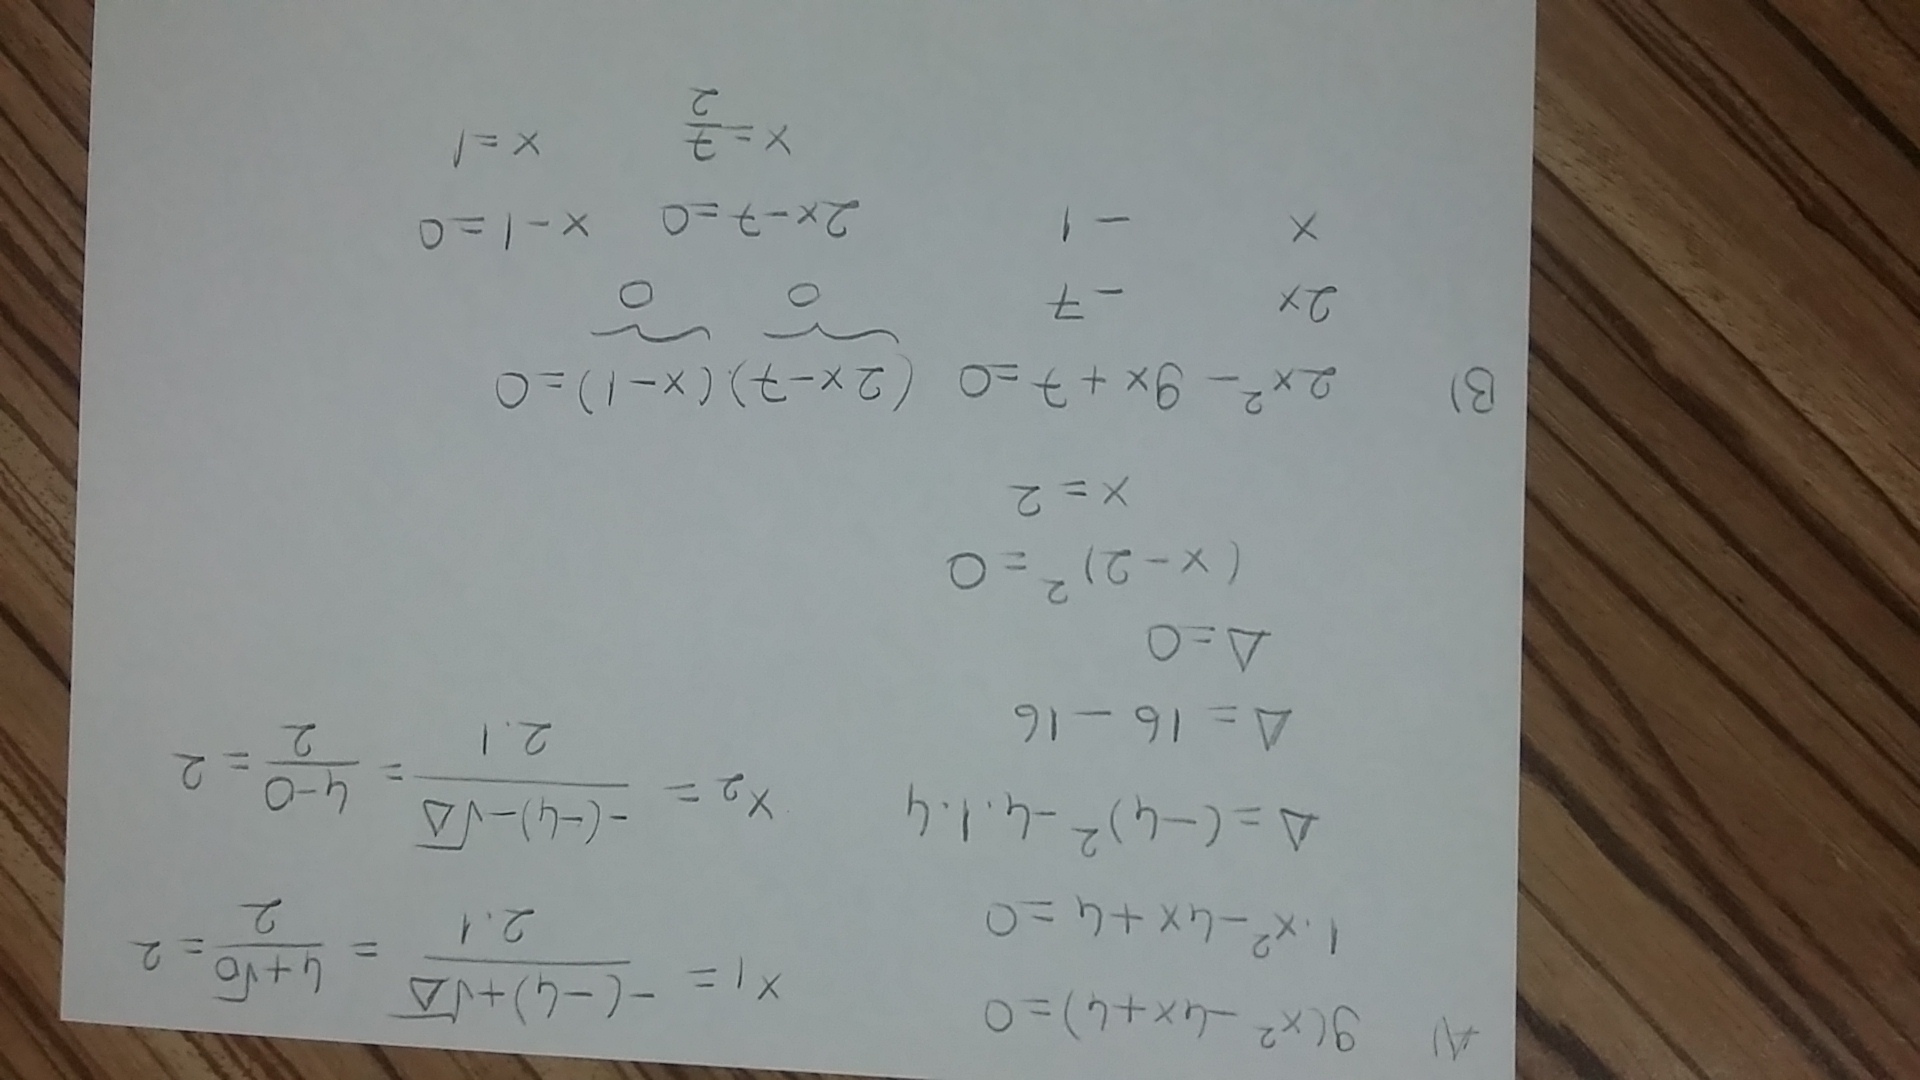 A) 9(x² - 4x + 4) = 0
1.x² - 4x + 4 = 0
Δ = (-4)² - 4.1.4
Δ = 16 - 16
Δ = 0
(x - 2)² = 0
x = 2
x1 = -(-4)+√Δ / 2.1 = 4+√0 / 2 = 2
x2 = -(-4)-√Δ / 2.1 = 4-0 / 2 = 2
B) 2x² - 9x + 7 = 0 (2x - 7)(x - 1) = 0
2x -7 0 0
x -1 2x - 7 = 0 x - 1 = 0
x = 7/2 x = 1